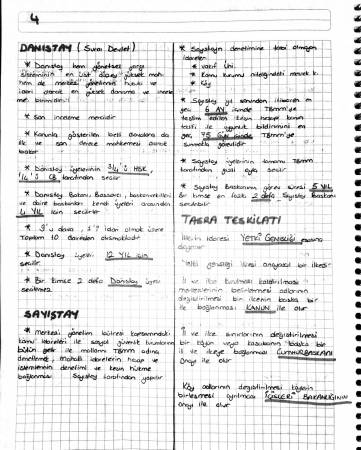 4
DANIŞTAY (Şurai Devlet)
* Danıştay hem yönetsel yargı
sisteminin en üst düzey mahkemesi
hem de merkezi yönetimin hukuki ve
idari olarak en yüksek danışma ve inceleme
birimidir.
* Son inceleme merciidir
* Kanunla gösterilen belli davalara da
ilk ve son derece mahkemesi olarak
bakar
* Danıştay üyelerinin 3/4'ü HSK,
1/4'ü CB tarafından seçilir
* Danıştay Başkanı, Başsavcı, başkanvekilleri
ve daire başkanları kendi üyeleri arasından
4 YIL için seçilir
* 9'u dava, 1'i idari olmak üzere
Toplam 10 daireden oluşmaktadır
* Danıştay üyeleri 12 YIL için
seçilir
* Bir kimse 2 defa Danıştay üyesi
seçilemez
SAYIŞTAY
* Merkezi yönetim bütçesi kapsamındaki
kamu idareleri ile sosyal güvenlik kurumlarının
bütün gelir ile malları TBMM adına
denetlemek, mahalli idarelerin hesap ve
işlemlerinin denetimi ve kesin hükme
bağlanması Sayıştay tarafından yapılır
* Sayıştayın denetimine tabi olmayan
idareler
* Vakıf Üni.
* Kamu kurumu niteliğindeki meslek k.
* Köy
* Sayıştay yıl sonundan itibaren en
geç 6 AY içinde TBMM'ye
teslim edilen kesin hesap kanun
teklifi ile uygunluk bildirimini en
geç 75 GÜN içinde TBMM'ye
sunmakla görevlidir
* Sayıştay üyelerinin tamamı TBMM
tarafından gizli oyla seçilir
* Sayıştay Başkanının görev süresi 5 YIL
Bir kimse en fazla 2 defa Sayıştay Başkanı
seçilebilir
TAŞRA TEŞKİLATI
İllerin idaresi YETKİ GENİŞLİĞİ esasına
dayanır
Yetki genişliği ilkesi anayasal bir ilkedir
İl ve ilçe kurulması kaldırılması
merkezlerinin belirlenmesi adlarının
değiştirilmesi bir ilçenin başka bir
ile bağlanması KANUN ile olur
İl ve ilçe sınırlarının değiştirilmesi
bir köyün veya kasabanın başka bir
il ve ilçeye bağlanması CUMHURBAŞKANI
onayı ile olur
Köy adlarının değiştirilmesi köylerin
birleşmesi ayrılması İÇİŞLERİ BAKANLIĞININ
onayı ile olur